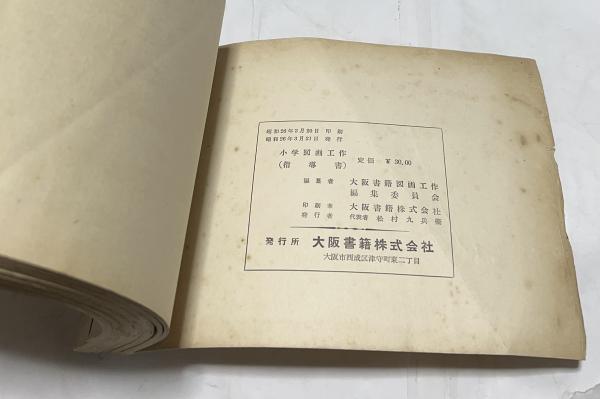 昭和26年3月20日 印刷
昭和26年3月31日 発行
小学図画工作
(指導書) 定価 ¥30.00
編集者 大阪書籍図画工作
編集委員会
印刷者 大阪書籍株式会社
発行者 代表者 松村九兵衛
発行所 大阪書籍株式会社
大阪市西成区津守町東二丁目